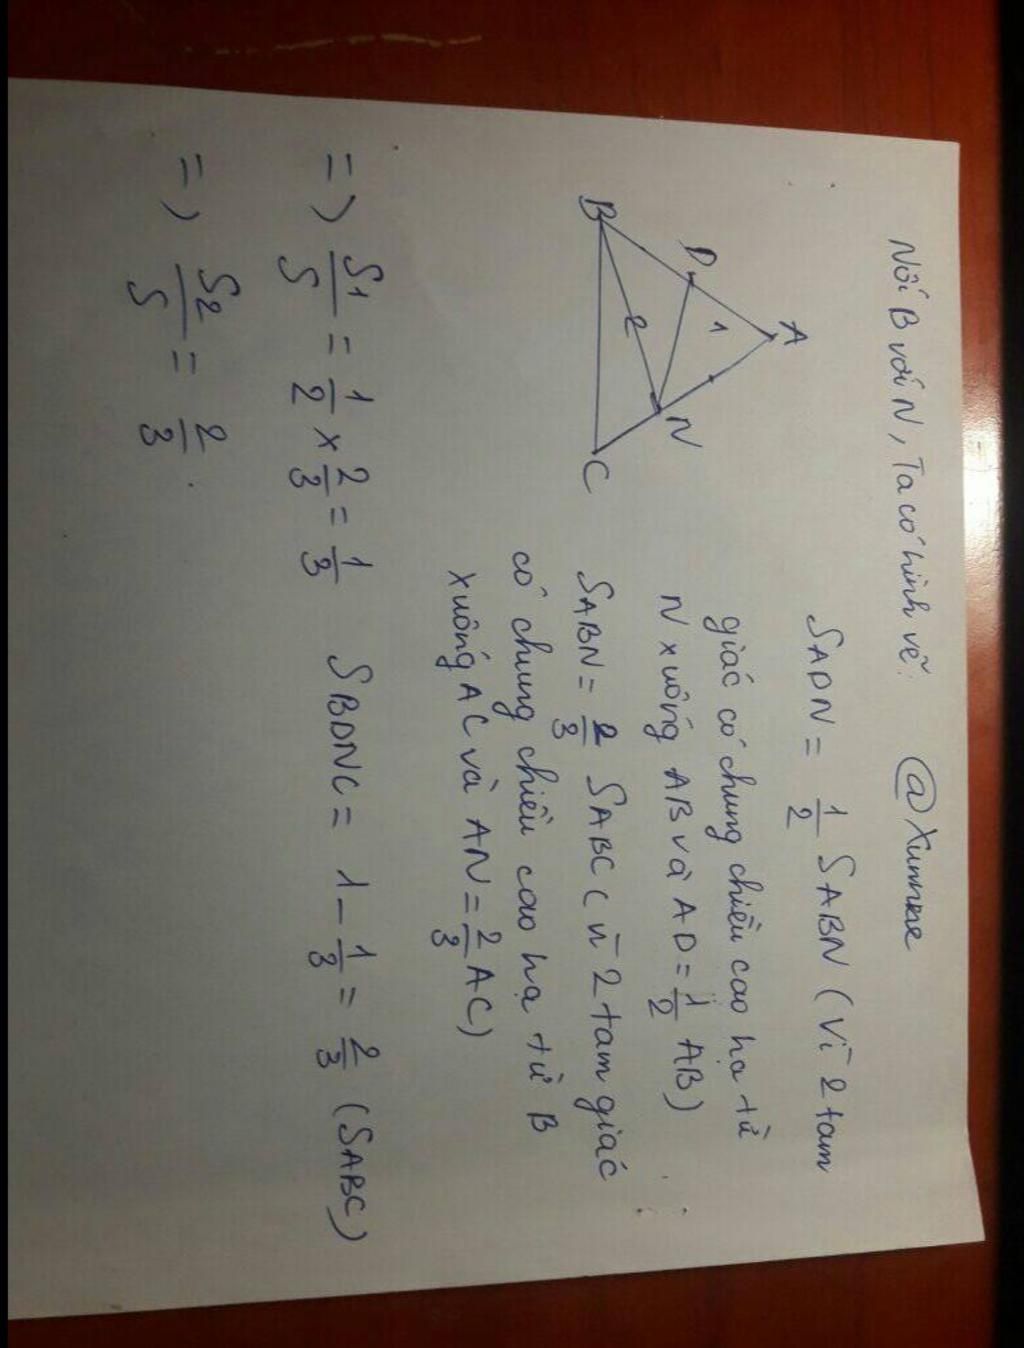 Nối B với N, Ta có hình vẽ: @Xumxoe
A
D
1
B
2
N
C
SADN = 1/2 SABN (Vì 2 tam
giác có chung chiều cao hạ từ
N xuống AB và AD = 1/2 AB)
SABN = 2/3 SABC (vì 2 tam giác
có chung chiều cao hạ từ B
xuống AC và AN = 2/3 AC)
=) S1/S = 1/2 x 2/3 = 1/3 SBDNC = 1 - 1/3 = 2/3 (SABC)
=) S2/S = 2/3.